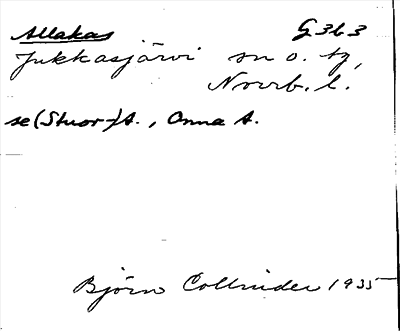 Allakas G 3 b 3
Jukkasjärvi sn o. tg,
Norrb. l.
se (Stuor-)A., Onna A.
Björn Collinder 1935